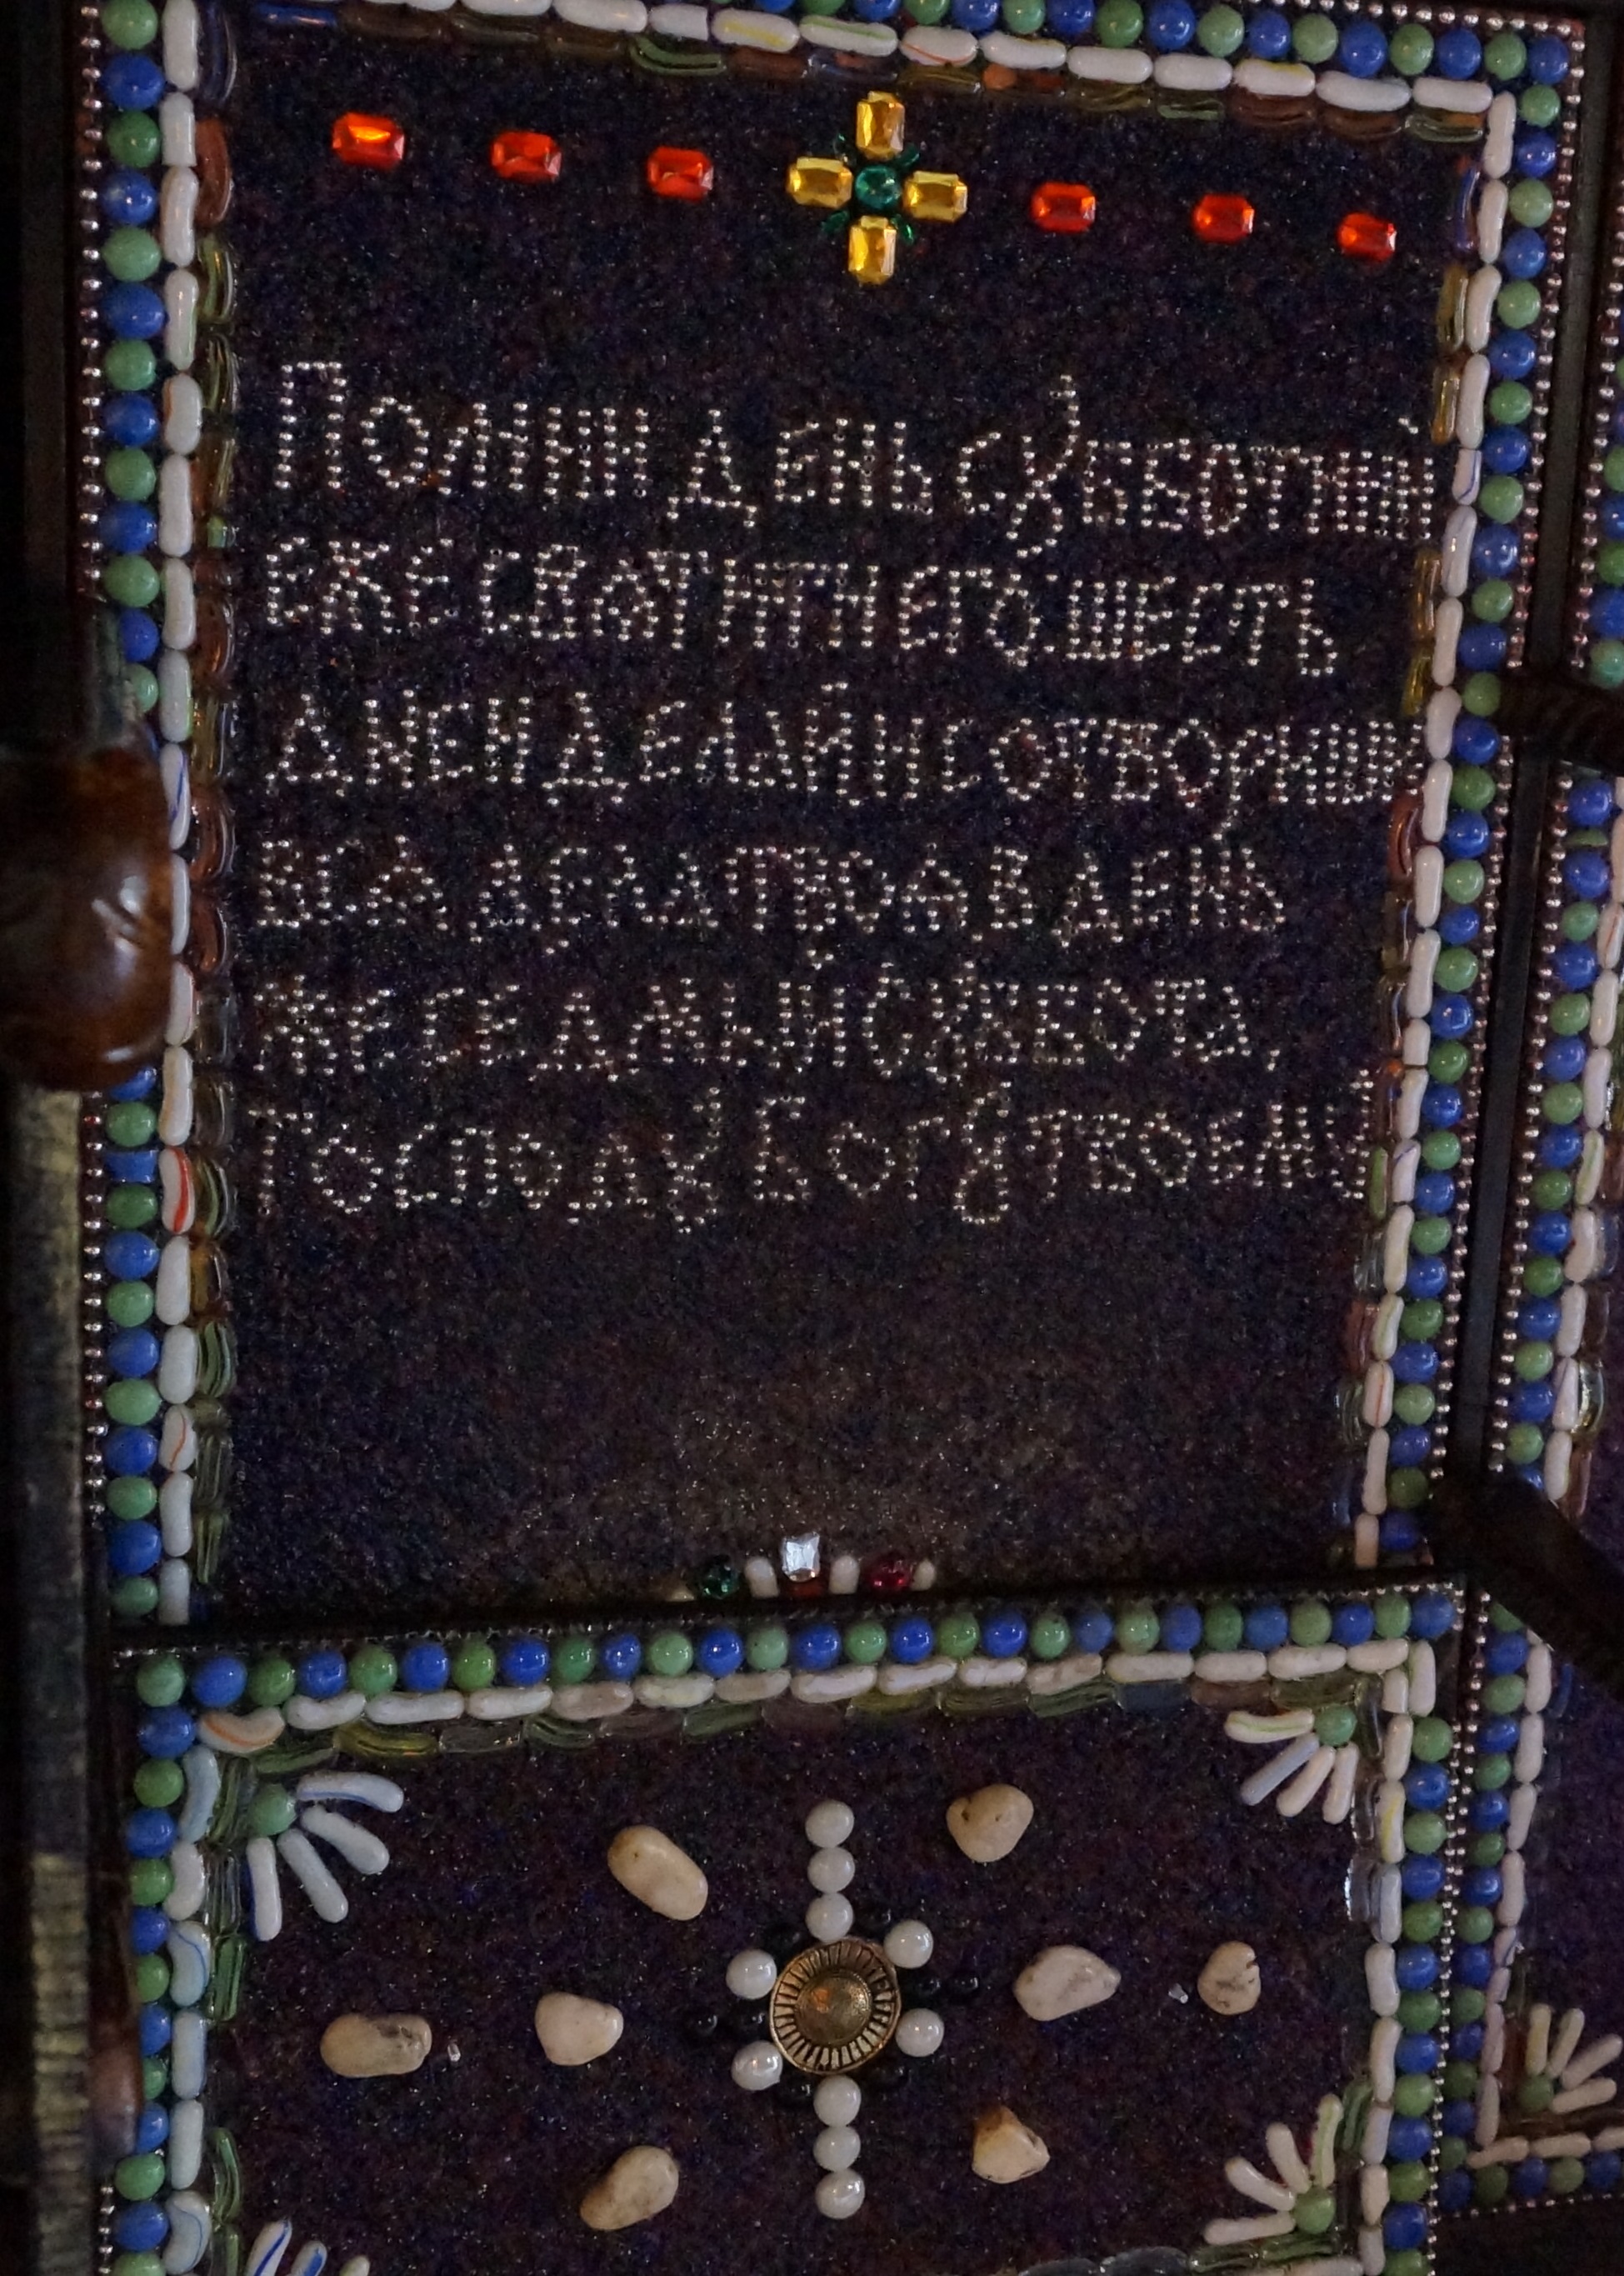 Помни день сꙋбботный
еже свѧтити его. шесть
дней делай и сотвориши
всѧ дела твоѧ в день
же седмый сꙋббота,
Господꙋ Богꙋ твоемꙋ